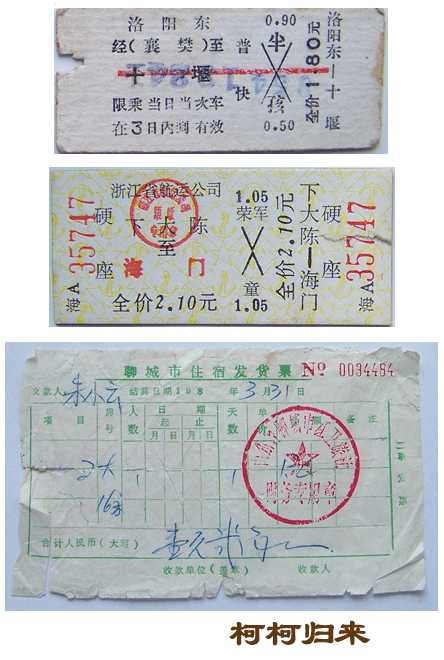 洛阳东
经(襄樊)至
十堰
限乘当日当次车
在3日内到有效
普
快
0.90
半
孩
0.50
全价1.80元
洛阳东—十堰
海A 35747
硬座
浙江省航运公司
下大陈
至
海门
全价2.10元
1.05
荣军
童
1.05
全价2.10元
下大陈—海门
硬座
海A 35747
聊城市住宿发货票
№ 0034484
交款人 朱小云
结算日期198 年3月31日
项目
房号
人
日期
起
止
月
日
月
日
天数
单
备注
1
1
合计人民币(大写)
收款单位(盖章)
收款人
财务专用章
柯柯归来